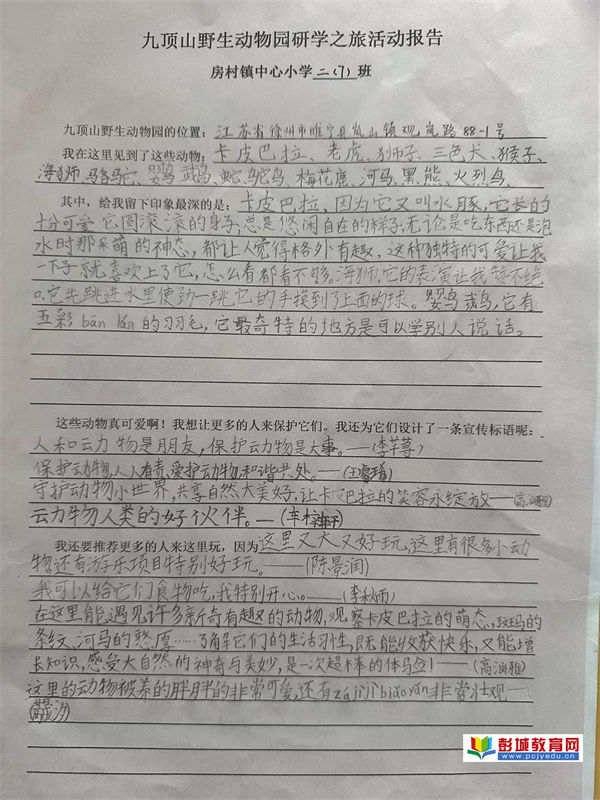 九顶山野生动物园研学之旅活动报告
房村镇中心小学二(7)班
九顶山野生动物园的位置：江苏省徐州市睢宁县岚山镇观岚路88-1号
我在这里见到了这些动物：卡皮巴拉、老虎、狮子、三色犬、猴子、
海狮、骆驼、鹦鹉、蛇、鸵鸟、梅花鹿、河马、黑熊、火烈鸟、
其中，给我留下印象最深的是：卡皮巴拉，因为它又叫水豚，它长的
十分可爱它圆滚滚的身子，总是悠闲自在的样子，无论是吃东西还是泡
水时那呆萌的神态，都让人觉得格外有趣，这种独特的可爱让我
一下子就喜欢上了它，怎么看都看不够。海狮，它的表演让我赞不绝
口，它先跳进水里使劲一跳，它的手摸到了上面的球。鹦鹉，它有
五彩bān lán的羽毛，它最奇特的地方是可以学别人说话。
这些动物真可爱啊！我想让更多的人来保护它们。我还为它们设计了一条宣传标语呢：
人和动物是朋友，保护动物是大事。——(李芊荨)
保护动物，人人有责，爱护动物，和谐共处。——(王睿)
守护动物小世界，共享自然大美好，让卡皮巴拉的笑容永绽放——
动物人类的好伙伴。——
我还要推荐更多的人来这里玩，因为这里又大又好玩，这里有很多小动
物还有游乐项目特别好玩。——(陈景润)
我可以给它们食物吃，我特别开心。——(李秋雨)
在这里能遇见许多新奇有趣的动物，观察卡皮巴拉的萌态，斑马的
条纹，河马的憨厚……了解它们的生活习性，既能收获快乐，又能增
长知识，感受大自然的神奇与美妙，是一次超棒的体验！——
这里的动物被养的胖胖的非常可爱，还有zá jì biǎo yǎn非常壮观——
彭城教育网
www.pcjyedu.cn